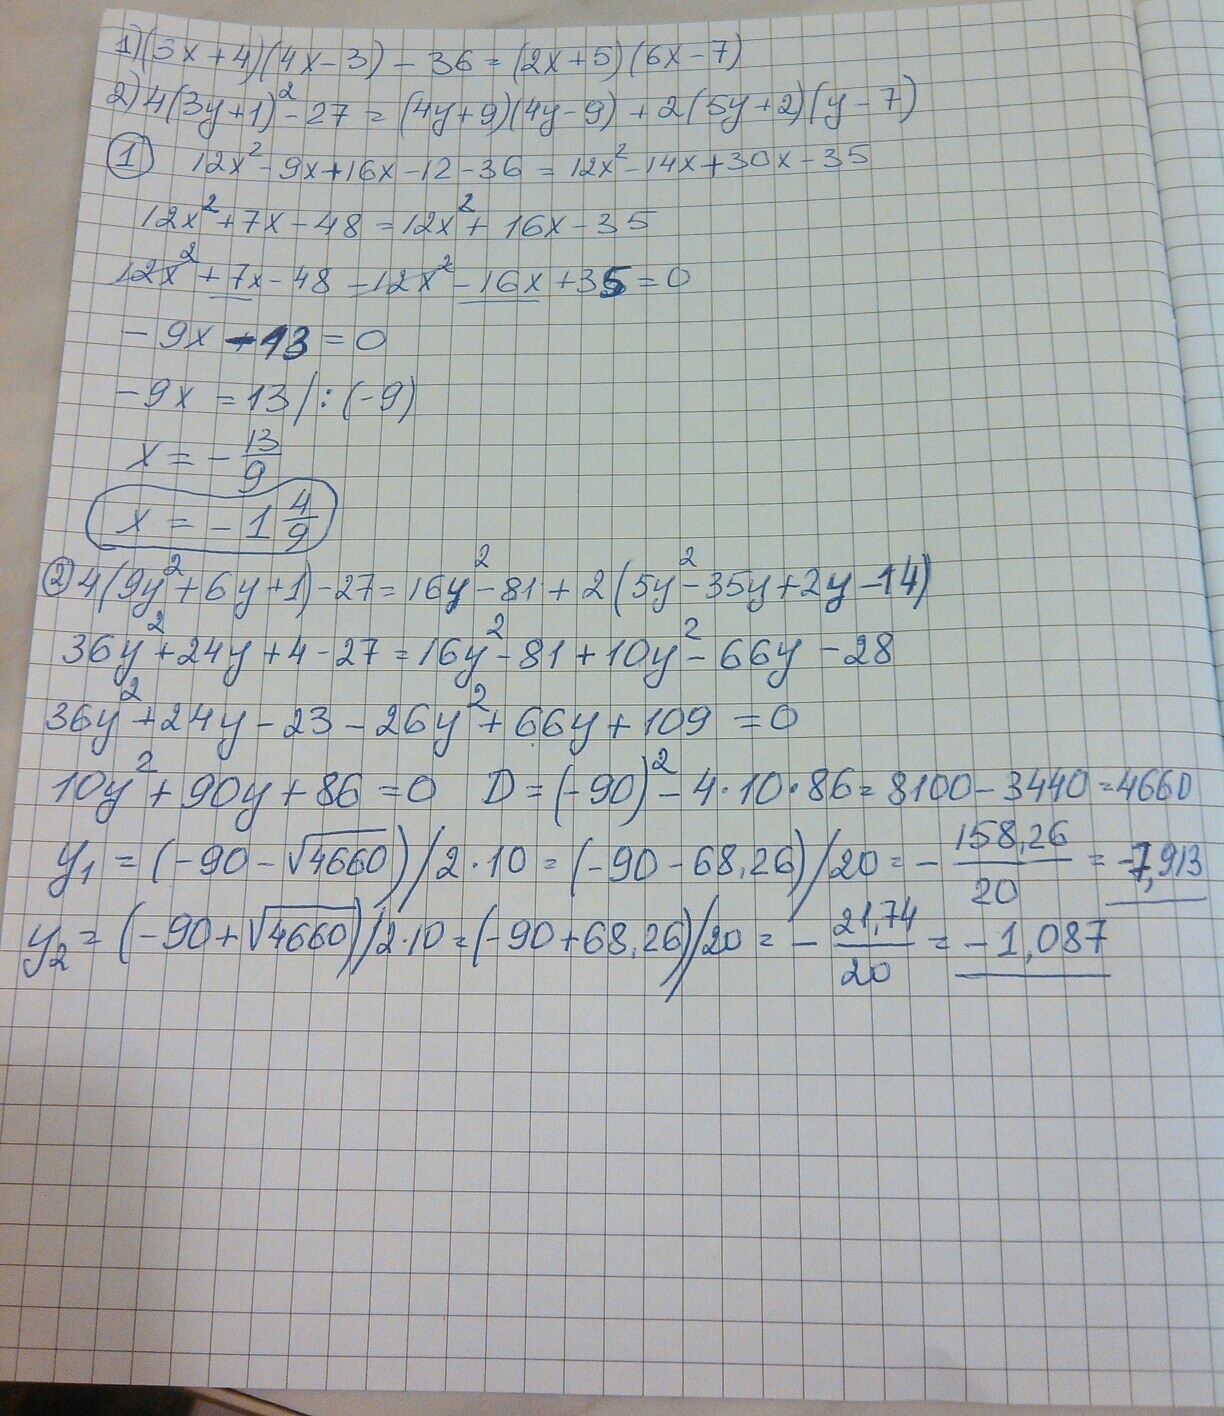 1) (3x+4)(4x-3) - 36 = (2x+5)(6x-7)
2) 4(3y+1)² - 27 = (4y+9)(4y-9) + 2(5y+2)(y-7)
① 12x² - 9x + 16x - 12 - 36 = 12x² - 14x + 30x - 35
12x² + 7x - 48 = 12x² + 16x - 35
12x² + 7x - 48 - 12x² - 16x + 35 = 0
-9x - 13 = 0
-9x = 13 /: (-9)
x = - 13/9
x = -1 4/9
② 4(9y² + 6y + 1) - 27 = 16y² - 81 + 2(5y² - 35y + 2y - 14)
36y² + 24y + 4 - 27 = 16y² - 81 + 10y² - 66y - 28
36y² + 24y - 23 - 26y² + 66y + 109 = 0
10y² + 90y + 86 = 0 D = (-90)² - 4·10·86 = 8100 - 3440 = 4660
y₁ = (-90 - √4660)/2·10 = (-90 - 68,26)/20 = - 158,26/20 = -7,913
y₂ = (-90 + √4660)/2·10 = (-90 + 68,26)/20 = - 21,74/20 = -1,087